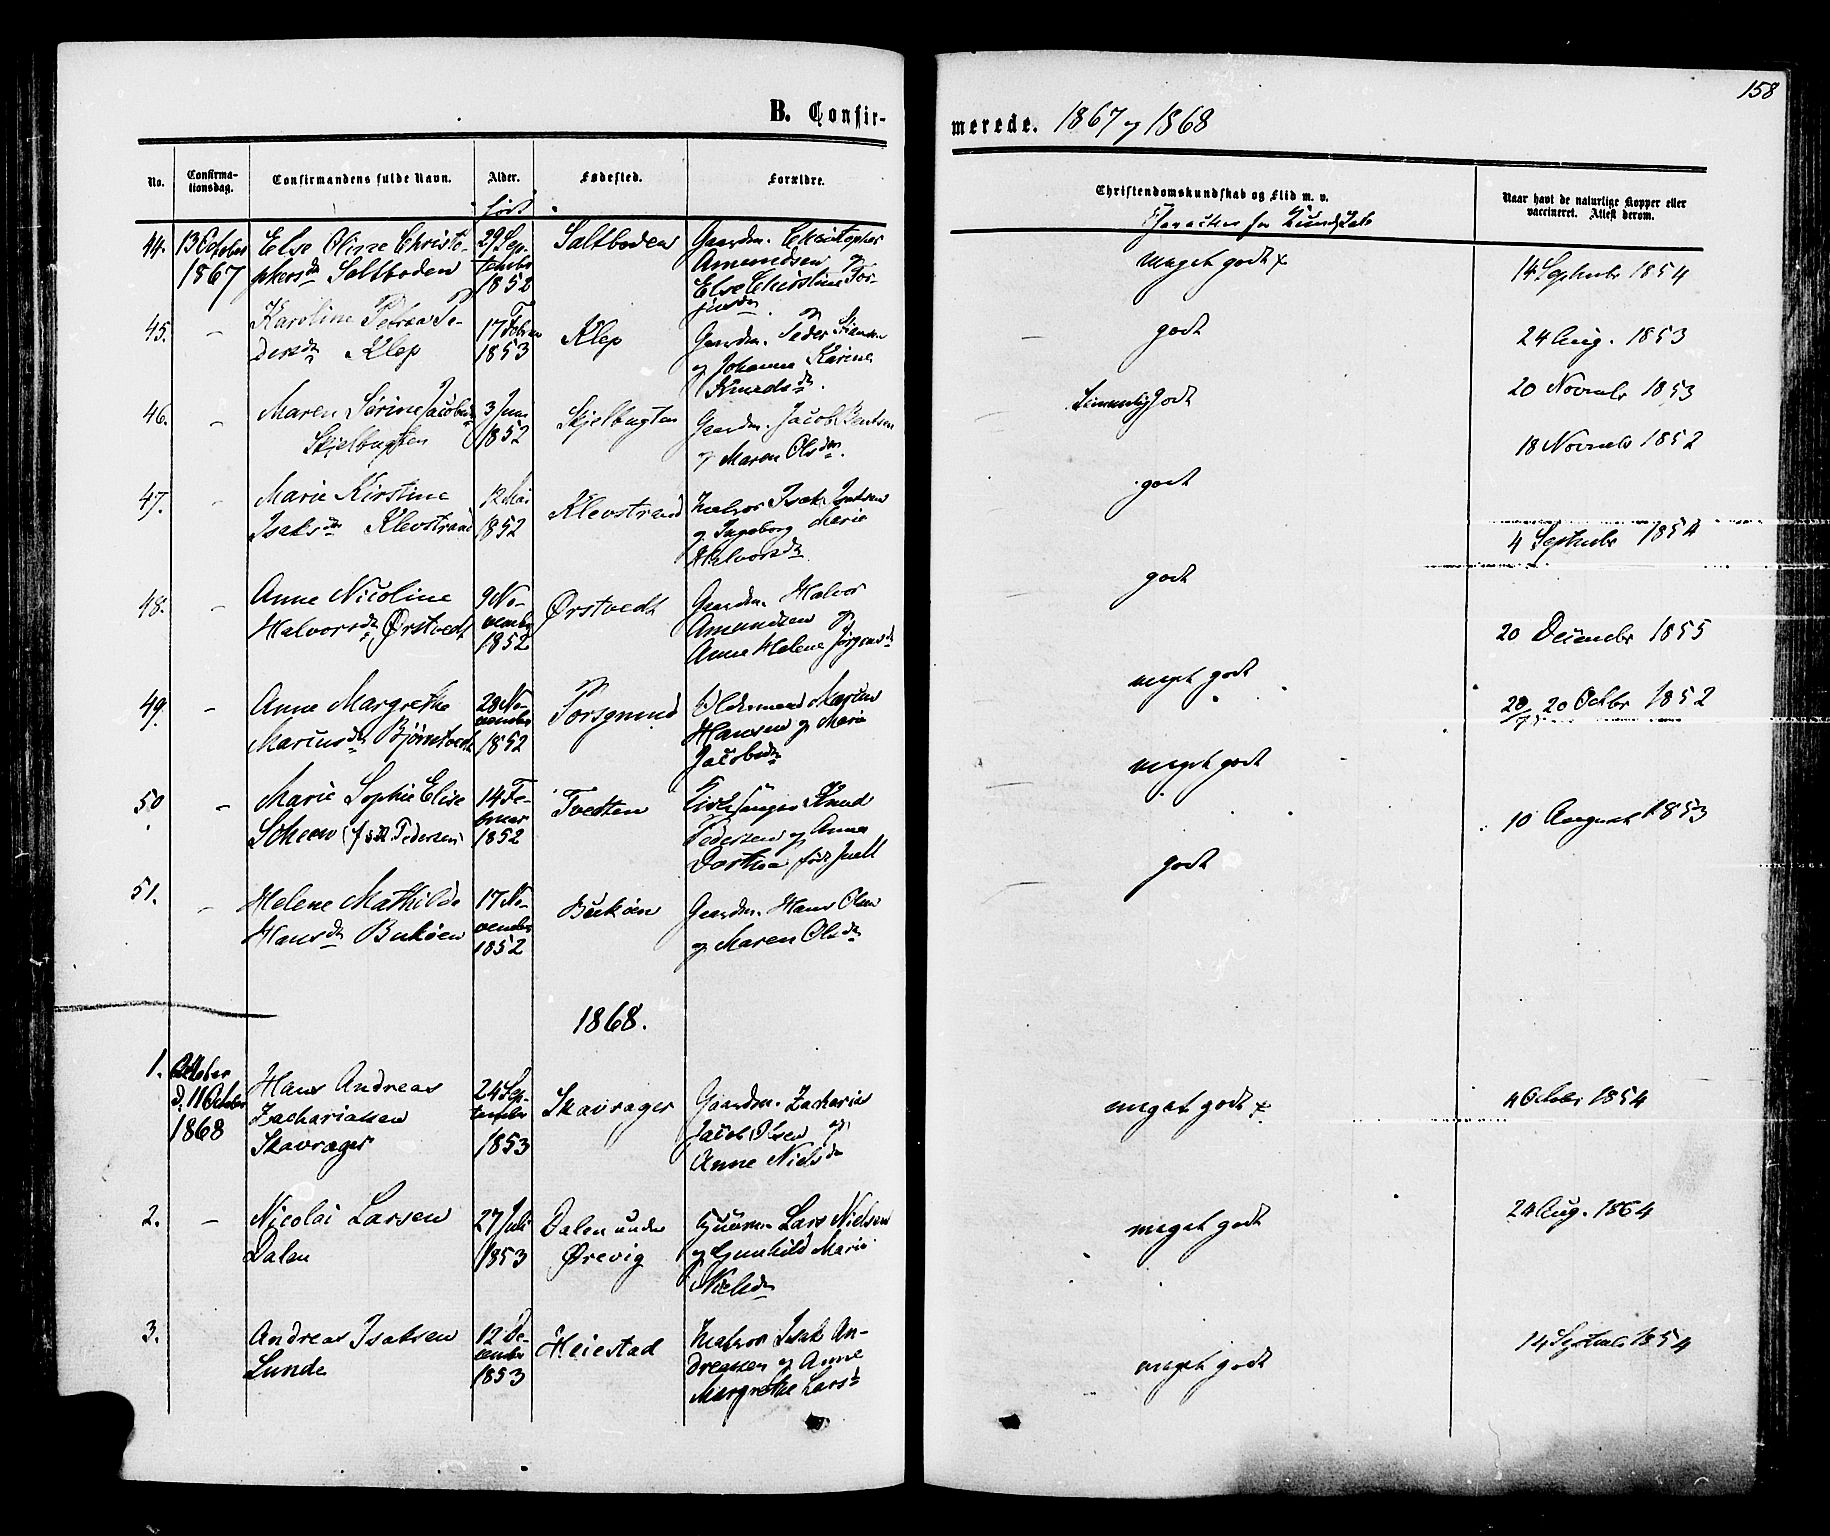 158
B. Confir-
merede. 1867 og 1868
No.
Confirma-
tionsdag.
Confirmandens fulde Navn.
Alder.
Fødested.
Forældre.
Christendomskundskab og Flid m. v.
Naar havt de naturlige Kopper eller
vaccineret. Attest derom.
født
44. 13 October
1867
Else Oline Christo-
phersdr Saltboden
29 Sep-
tember
1852
Saltboden
Gaardm. Christopher
Amundsen og
Else Christine
meget godt x
14 Septembr 1854
45. -
Karoline Petrea Pe-
dersdr Klep
17 Febru
1853
Klep
Gaardm. Peder
og Johanne Karine
Knudsdr.
godt
24 Aug. 1853
46. -
Maren Sørine Jacobsdr
Skjelbugten
3 Juni
1852
Skjelbugten
Gaardm. Jacob Bentsen
og Maren Olsdr.
temmelig godt
20 Novembr 1853
47. -
Marie Kirstine
Isaksdr Klevstrand
12 Mai
1852
Klevstrand
Matros Isak
og Ingeborg Marie
Halvorsdr
godt
18 Novembr 1852
48. -
Anne Nicoline
Halvorsdr Ørstvedt
9 No-
vembr
1852
Ørstvedt
Gaardm. Halvor
Amundsen og
Anne Helene Jørgensdr
godt
4 Septembr 1854
49. -
Anne Margrethe
Mariusdr Bjørnstvedt
28 No-
vember
1852
Porsgrund
Oldermand Marius
Hansen og Marie
Jacobsdr
meget godt
20 Decembr 1855
50 -
Marie Sophie Elise
Scheen (f. Pedersen)
14 Fe-
bruar
1852
Tvedten
Kirkesanger Knud
Pedersen og Anne
Dorthea født Juell
meget godt
20 Octbr 1852
51. -
Helene Mathilde
Hansdr Bukøen
17 No-
vember
1852
Bukøen
Gaardm. Hans Olsen
og Maren Olsdr
godt
10 August 1853
1868.
1.
d. 11 October
1868
Hans Andreas
Zachariassen
Skavrager
24 Sep-
tember
1853
Skavrager
Gaardm. Zacharias
Jacob Olsen og
Anne Nielsdr
meget godt x
4 Octobr 1854
2. -
Nicolai Larsen
Dalen
27 Juli
1853
Dalen under
Ørevig
Lars Nielsen
og Gunhild Marie
Nielsdr
meget godt
24 Aug. 1864
3.
Andreas Isaksen
Lunde
12 De-
cember
1853
Heiestad
Matros Isak An-
dreassen og Anne
Margrethe Larsdr
meget godt
14 Septembr 1854